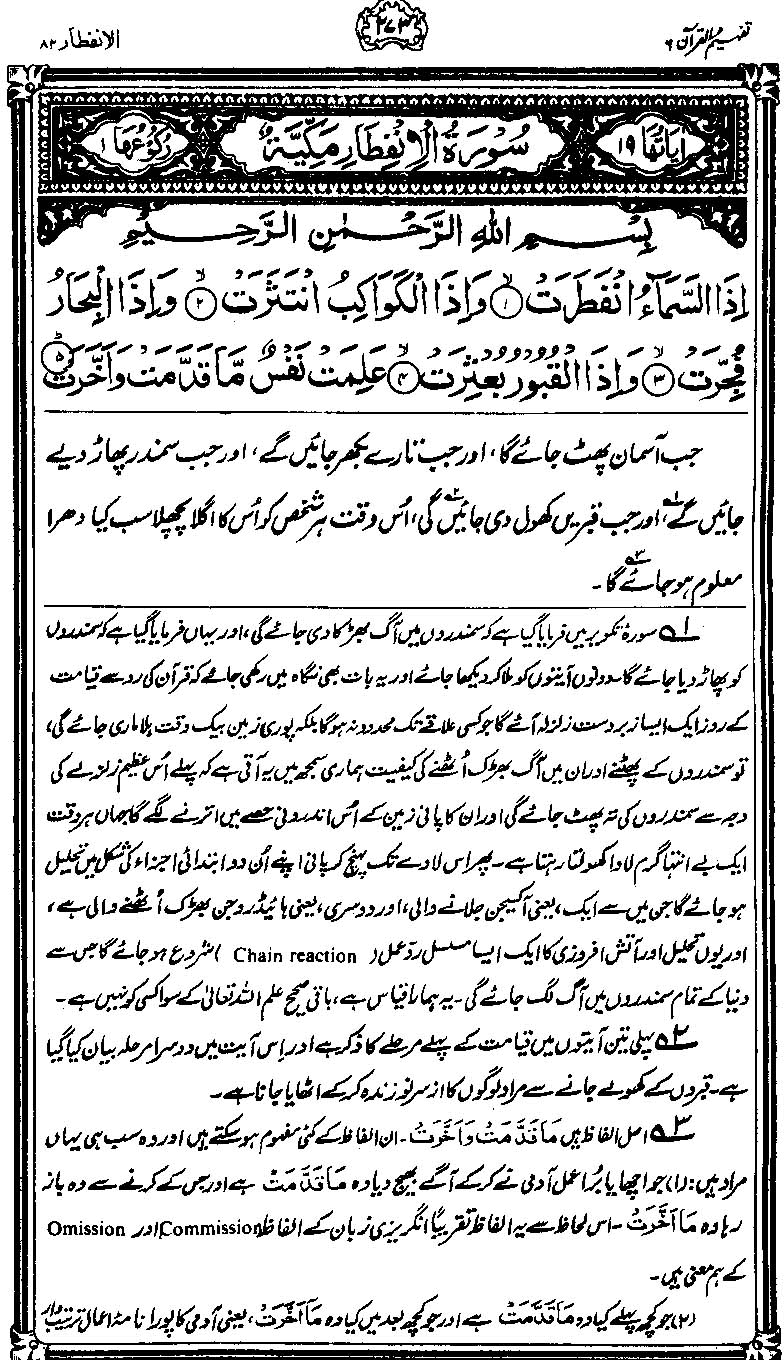 تفہیم القرآن ۶
۲۷۳
الانفطار ۸۲
اٰیَاتُهَا ۱۹
سُوْرَةُ الْاِنْفِطَارِ مَكِّيَّةٌ
رُكُوْعُهَا ۱
بِسْمِ اللهِ الرَّحْمٰنِ الرَّحِيْمِ
اِذَا السَّمَآءُ انْفَطَرَتْ ۙ﴿۱﴾ وَاِذَا الْكَوَاكِبُ انْتَثَرَتْ ۙ﴿۲﴾ وَاِذَا الْبِحَارُ
فُجِّرَتْ ۙ﴿۳﴾ وَاِذَا الْقُبُوْرُ بُعْثِرَتْ ۙ﴿۴﴾ عَلِمَتْ نَفْسٌ مَّا قَدَّمَتْ وَاَخَّرَتْ ؕ﴿۵﴾
جب آسمان پھٹ جائے گا، اور جب تارے بکھر جائیں گے، اور جب سمندر پھاڑ دیے
جائیں گے،۱ اور جب قبریں کھول دی جائیں گی،۲ اُس وقت ہر شخص کو اُس کا اگلا پچھلا سب کیا دھرا
معلوم ہو جائے گا۳۔
۱ سورۂ تکویر میں فرمایا گیا ہے کہ سمندروں میں آگ بھڑکا دی جائے گی، اور یہاں فرمایا گیا ہے کہ سمندروں
کو پھاڑ دیا جائے گا۔ دونوں آیتوں کو ملا کر دیکھا جائے اور یہ بات بھی نگاہ میں رکھی جائے کہ قرآن کی رو سے قیامت
کے روز ایک ایسا زبردست زلزلہ آئے گا جو کسی علاقے تک محدود نہ ہوگا بلکہ پوری زمین بیک وقت ہلا ماری جائے گی،
تو سمندروں کے پھٹنے اور ان میں آگ بھڑک اُٹھنے کی کیفیت ہماری سمجھ میں یہ آتی ہے کہ پہلے اُس عظیم زلزلے کی
وجہ سے سمندروں کی تہ پھٹ جائے گی اور ان کا پانی زمین کے اُس اندرونی حصے میں اترنے لگے گا جہاں ہر وقت
ایک بے انتہا گرم لاوا کھولتا رہتا ہے۔ پھر اس لاوے تک پہنچ کر پانی اپنے اُن دو ابتدائی اجزاء کی شکل میں تحلیل
ہو جائے گا جن میں سے ایک، یعنی آکسیجن جلانے والی، اور دوسری، یعنی ہائیڈروجن بھڑک اُٹھنے والی ہے،
اور یوں تحلیل اور آتش افروزی کا ایک ایسا مسلسل ردّ عمل (Chain reaction) شروع ہو جائے گا جس سے
دنیا کے تمام سمندروں میں آگ لگ جائے گی۔ یہ ہمارا قیاس ہے، باقی صحیح علم اللہ تعالیٰ کے سوا کسی کو نہیں ہے۔
۲ پہلی تین آیتوں میں قیامت کے پہلے مرحلے کا ذکر ہے اور اِس آیت میں دوسرا مرحلہ بیان کیا گیا
ہے۔ قبروں کے کھولے جانے سے مراد لوگوں کا از سر نو زندہ کر کے اٹھایا جانا ہے۔
۳ اصل الفاظ ہیں مَا قَدَّمَتْ وَاَخَّرَتْ۔ ان الفاظ کے کئی مفہوم ہو سکتے ہیں اور وہ سب ہی یہاں
مراد ہیں: (۱) جو اچھا یا بُرا عمل آدمی نے کر کے آگے بھیج دیا وہ مَا قَدَّمَتْ ہے اور جس کے کرنے سے وہ باز
رہا وہ مَا اَخَّرَتْ۔ اس لحاظ سے یہ الفاظ تقریباً انگریزی زبان کے الفاظ Commission اور Omission
کے ہم معنی ہیں۔
(۲) جو کچھ پہلے کیا وہ مَا قَدَّمَتْ ہے اور جو کچھ بعد میں کیا وہ مَا اَخَّرَتْ، یعنی آدمی کا پورا نامۂ اعمال ترتیب وار